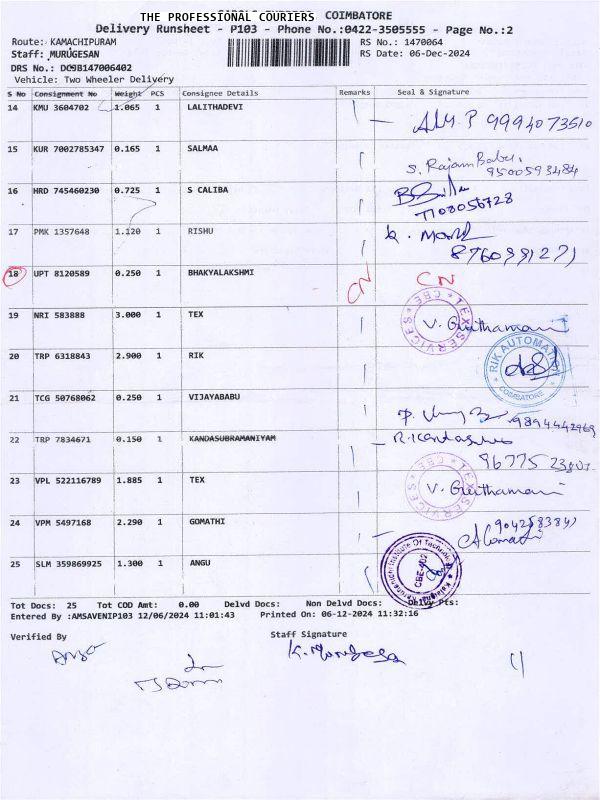 THE PROFESSIONAL COURIERS COIMBATORE
Delivery Runsheet - P103 - Phone No.:0422-3505555 - Page No.:2
Route: KAMACHIPURAM RS No.: 1470064
Staff: MURUGESAN RS Date: 06-Dec-2024
DRS No.: DC9B147006402
Vehicle: Two Wheeler Delivery
S No Consignment No Weight PCS Consignee Details Remarks Seal & Signature
14 KMU 3604702 1.065 1 LALITHADEVI 9994073510
15 KUR 7002785347 0.165 1 SALMAA S. Rajam Babu, 9500593484
16 HRD 745460230 0.725 1 S CALIBA
17 PMK 1357648 1.120 1 RISHU
18 UPT 8120589 0.250 1 BHAKYALAKSHMI CN CN
19 NRI 583888 3.000 1 TEX TEX SERVICES CBE
20 TRP 6318843 2.900 1 RIK RIK AUTOMATION COIMBATORE
21 TCG 50768062 0.250 1 VIJAYABABU
22 TRP 7834671 0.150 1 KANDASUBRAMANIYAM
23 VPL 522116789 1.885 1 TEX TEX SERVICES CBE
24 VPM 5497168 2.290 1 GOMATHI
25 SLM 359869925 1.300 1 ANGU
Tot Docs: 25 Tot COD Amt: 0.00 Delvd Docs: Non Delvd Docs: Delvy Pts:
Entered By :AMSAVENIP103 12/06/2024 11:01:43 Printed On: 06-12-2024 11:32:16
Verified By Staff Signature